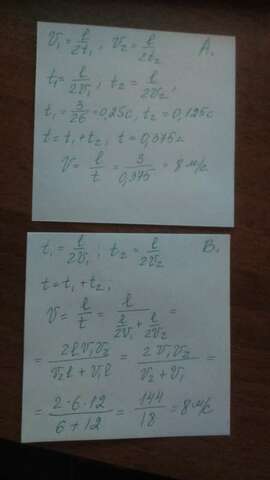 A.
v₁ = l/2t₁; v₂ = l/2t₂
t₁ = l/2v₁; t₂ = l/2v₂;
t₁ = 3/26 = 0,25с, t₂ = 0,125с
t = t₁ + t₂, t = 0,375с
v = l/t = 3/0,375 = 8 м/с
B.
t₁ = l/2v₁; t₂ = l/2v₂
t = t₁ + t₂,
v = l/t = l/(l/2v₁ + l/2v₂) =
= 2lv₁v₂/(v₂l + v₁l) = 2v₁v₂/(v₂ + v₁) =
= 2·6·12/(6 + 12) = 144/18 = 8 м/с